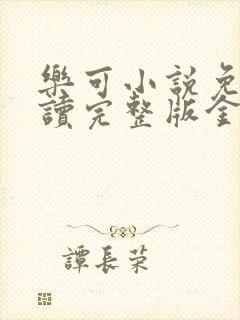 樂可小說免
讀完整版全
譚長荣